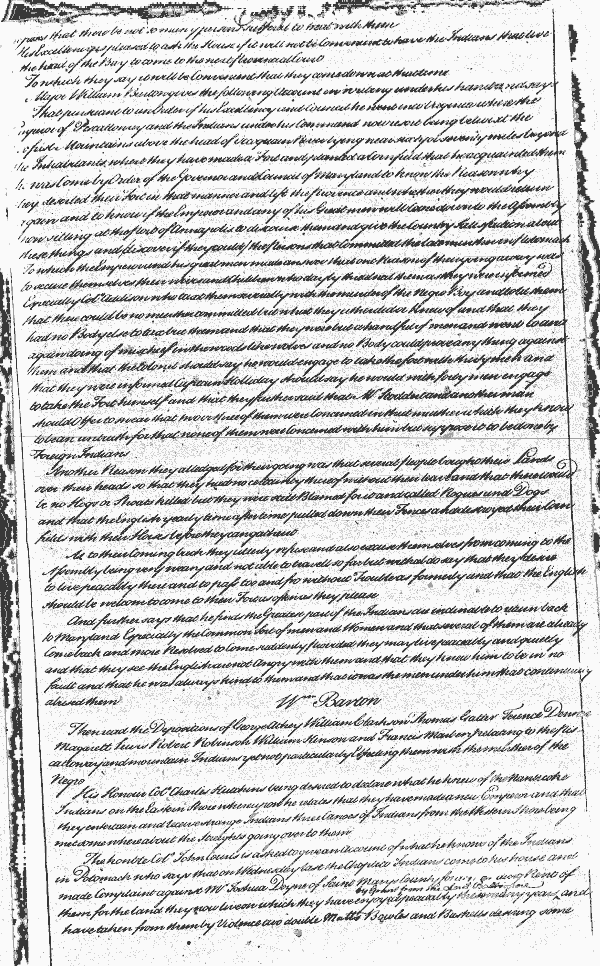 pears that there be not so many persons suffered to treat with them
His Excellency is pleased to ask the House if it will not be Convenient to have the Indians that live
the head of the Bay to come to the next Provincial Court
To which they say it will be Convenient that they come down at that time
Major William Barton gives the following Account in writing under his hand
That pursuant to an Order of his Excellency and Council he went into Virginia where the
Emperor of Piscattoway and the Indians under his Command now reside being betwixt the
of first Mountains above the head of River lying near sixty or seventy miles beyond
the Inhabitants, where they have made a Fort and planted a Cornfield that he acquainted them
he was Come by Order of the Governor and Council of Maryland to know the Reason why
they deserted their Fort in that manner and left the province and whether they would return
again and to know if the Emperor and any of his Great men will Come down to the Assembly
now sitting at the port of Annapolis to discourse them and give the Country Satisfaction about
these things and discover if they could the persons that Committed the late murther in Potomack
To which the Emperor and his great men made answer that one Reason of their going away was
to secure themselves their wives and Children who daily threatned them as they were informed
Especially Col Addison who taxt them severally with the murder of the Negro Boy and told them
that there could be no murther committed but what they either did or knew of and that they
had no Body else to take but them and that they were but a handful of men and went to and
again doing of mischief in the woods themselves and no Body could prove any thing against
them and that the Colonel should say he would engage to take the foot with thirty men and
that they were informed Captain Holliday should say he would with forty men engage
to take the Fort himself and that they further said that Mr Stoddert and another man
should Offer to swear that two or three of them were Concerned in that murther which they know
to be an untruth for that none of them were Concerned with him but suppose it to be done by
Foreign Indians
Another Reason they alledged for their going was that several people bought their Lands
over their heads so that they had no certainty thereof without their leave and that there could
be no Hogs or Shoats killed but they were still Blamed for it and called Rogues and Dogs
and that the English yearly time after time pulled down their Fences and destroyed their Corn
fields with their Horses before they can gather it
As to their Coming back they utterly refuse and also excuse themselves from coming to the
Assembly being very weary and not able to travel so far but withal do say that they desire
to live peaceably there and to pass too and fro without Trouble as formerly and that the English
should be welcome to come to their Fort as often as they please
And further says that he finds the Greater part of the Indians are inclinable to return back
to Maryland Especially the Common Sort of men and Women and that several of them are already
Come back and more Resolved to Come suddenly provided they may live peaceably and quietly
and that they see the English are not Angry with them and that they knew him to be in no
fault and that he was always kind to them and that it was the men under him that continually
abused them
Wm Barton
Then read the Depositions of George William Clarkson Thomas Gater Terence
Magarett Lewis Robert Robinson William Henson and Francis Marlory relating to the Pis
cattoway and mountain Indians yet not particularly Effecting them with the murther of the
Negro
His Honour Col Charles Hutchins being desired to declare what he knows of the Nanticoke
Indians on the Eastern Shore whereupon he relates that they have made a new Emperor and that
they entertain and receive strange Indians three Canoes of Indians from the Western Shore being
met some where about the Straights going over to them
The honble Col John Courts is asked to give an Account of what he knows of the Indians
in Potomack who says that on Wednesday last the Choptico Indians came to his house and
made Complaint against Mr Joshua Doyne of Saint Marys County for a Plenty of
them for the land they now live on which they have enjoyed peaceably these many years and
have taken from them by Violence two double Matts Bowles and Baskets desiring some